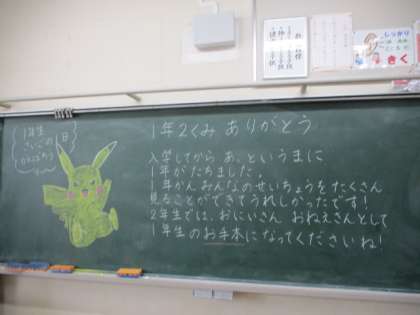 1年生
さいごの
1日
1年2くみ ありがとう
入学してから あ、というまに
1年がたちました。
1年かん みんなのせいちょうを たくさん
見ることができて うれしかったです!
2年生では、おにいさん おねえさんとして
1年生のお手本になってくださいね!
しっかり
きく